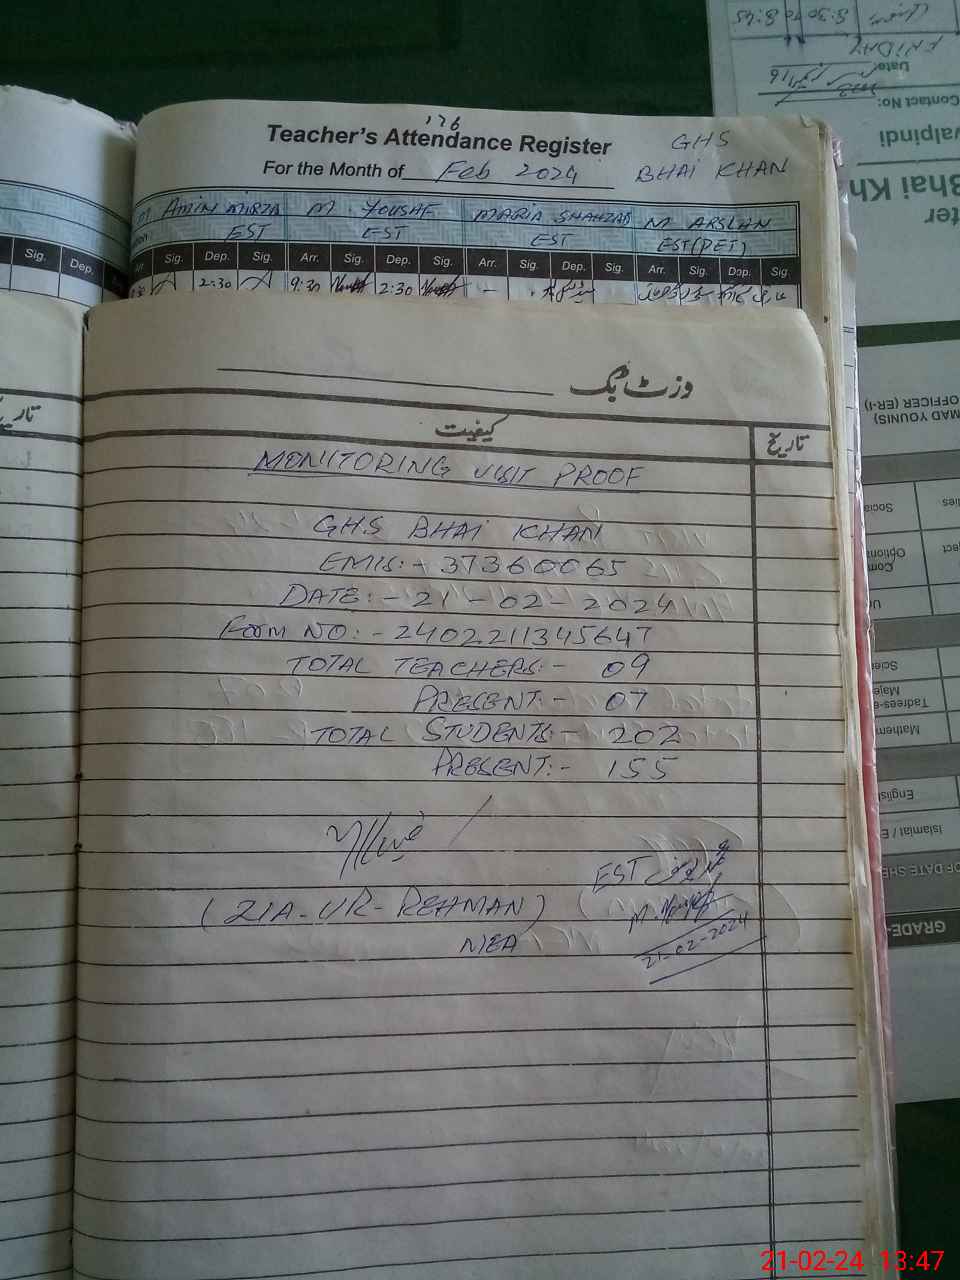 176
Teacher's Attendance Register
GHS
For the Month of Feb 2024 BHAI KHAN
M. AMIN MIRZA M. YOUSAF MARIA SHAHZAD M ARSLAN
EST EST EST EST(PET)
Sig. Dep. Arr. Sig. Dep. Sig. Arr. Sig. Dep. Sig. Arr. Sig. Dep. Sig. Arr. Sig. Dep. Sig.
2:30 9:30 2:30 -
وزٹ بک
تاریخ کیفیت
MONITORING VISIT PROOF
GHS BHAI KHAN
EMIS:- 37360065
DATE:- 21-02-2024
FORM NO:- 2402211345647
TOTAL TEACHERS:- 09
PRESENT:- 07
TOTAL STUDENTS:- 202
PRESENT:- 155
(ZIA-UR-REHMAN)
MEA
EST
21-02-2024
8:30 to 8:45
FRIDAY
Date:
Contact No:
walpindi
Bhai Kh
MAD YOUNIS)
OFFICER (ER-I)
Social
Optiona
Com
Scie
Maje
Tadrees-e
Mathem
English
Islamiat / E
OF DATE SHE
GRADE-
21-02-24 13:47